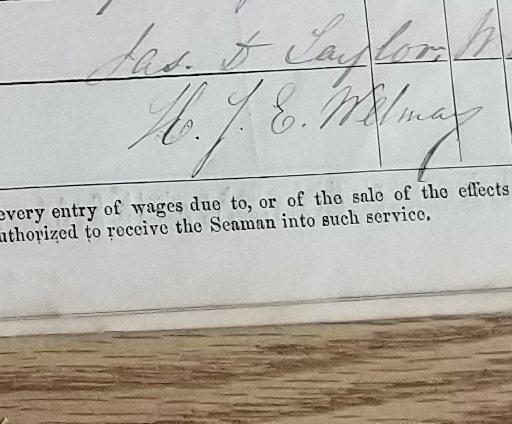 Jas. D Taylor, M
H. J. E. Welmay
every entry of wages due to, or of the sale of the effects
uthorized to receive the Seaman into such service.